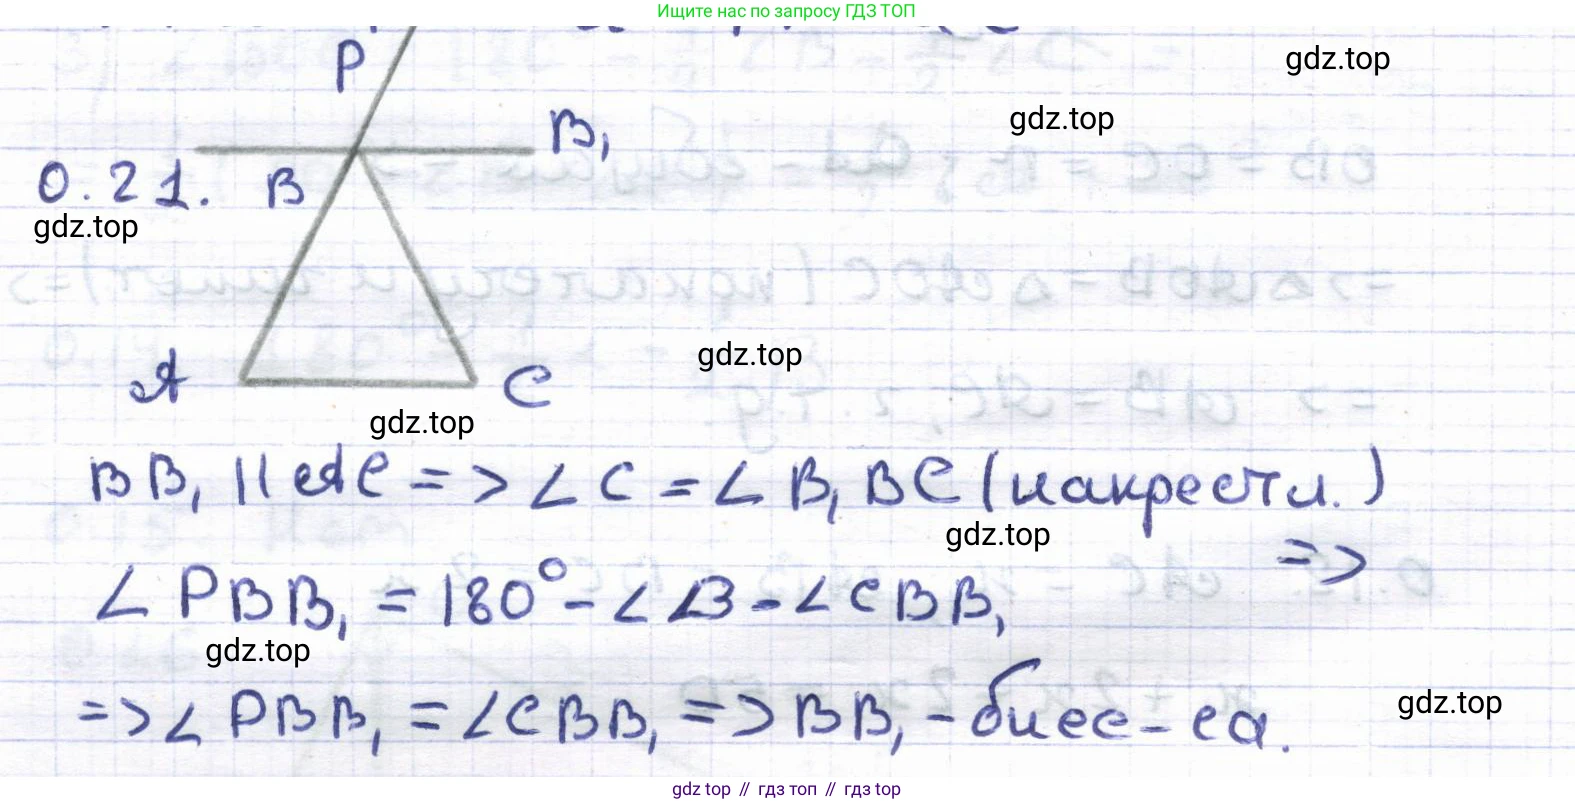 Ищите нас по запросу ГДЗ ТОП
P
gdz.top
gdz.top
B₁
0.21. B
gdz.top
gdz.top
A C
gdz.top
BB₁ || AC => ∠C = ∠B₁BC (накрест л.)
gdz.top
=>
∠PBB₁ = 180° - ∠B - ∠CBB₁
gdz.top
=> ∠PBB₁ = ∠CBB₁ => BB₁ - бисс-са.
gdz.top
gdz top // гдз топ // гдз top